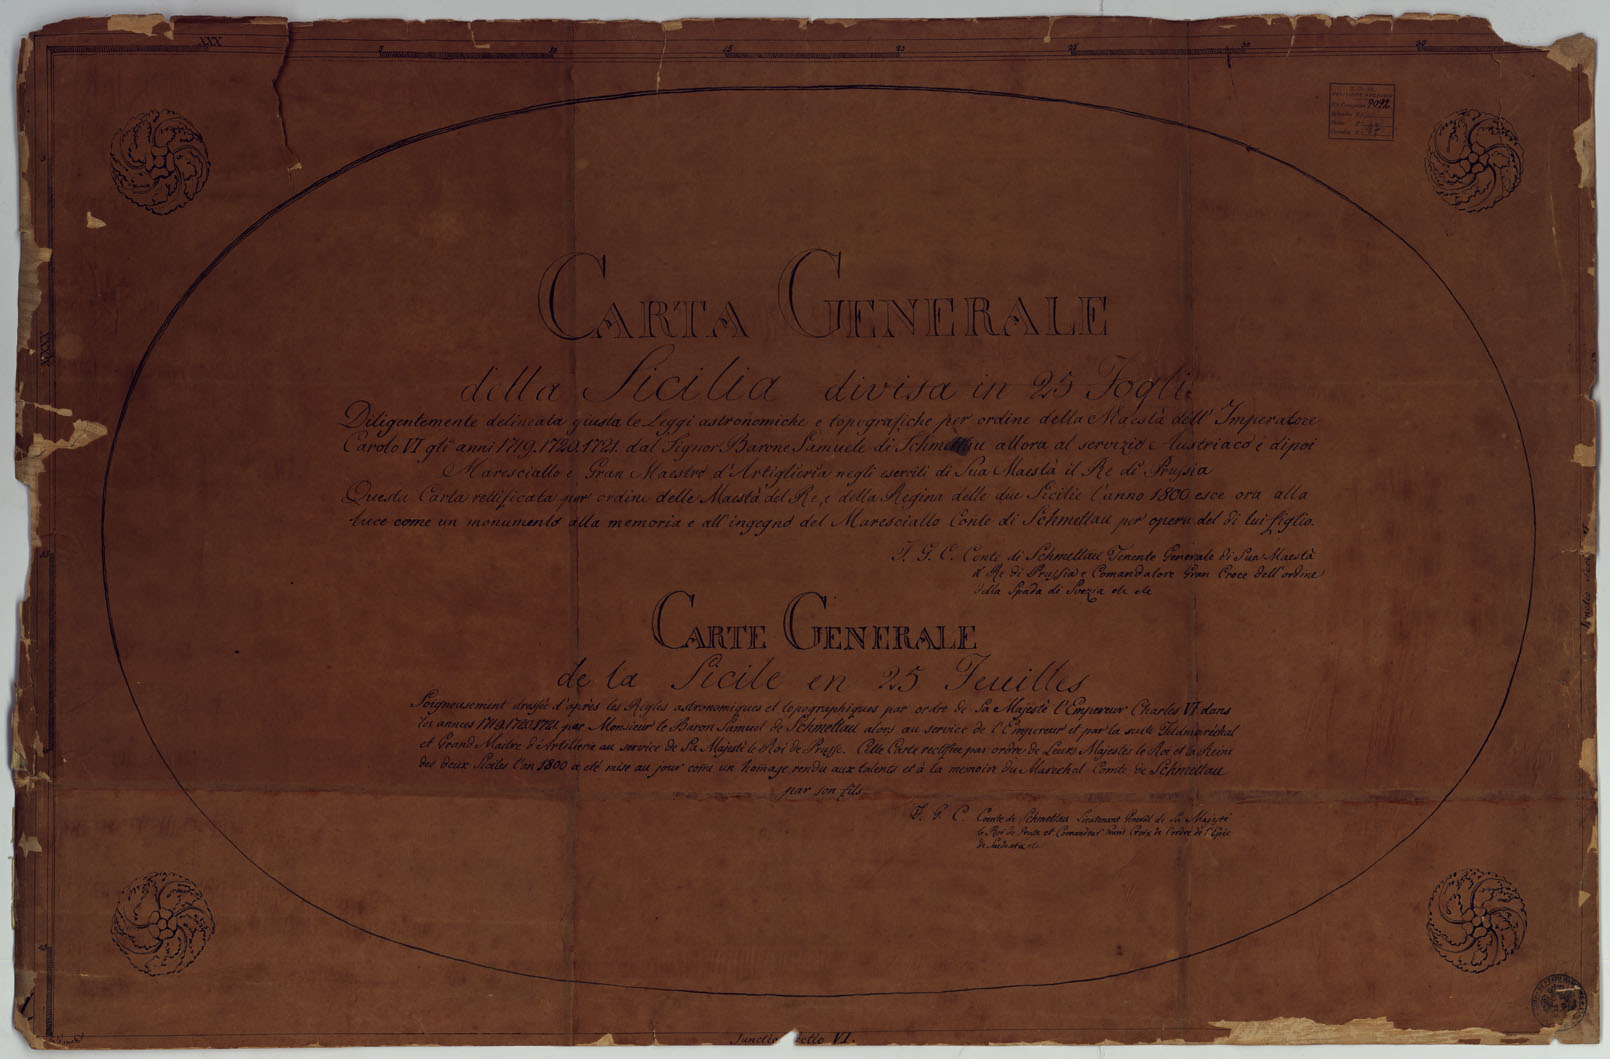 XXX 5 10 15 20 25 30 40
9092
CARTA GENERALE
della Sicilia divisa in 25 Fogli
Diligentemente delineata giusta le Leggi astronomiche e topografiche per ordine della Maestà dell' Imperatore
Carolo VI gli anni 1719.1720.1721. dal Signor Barone Samuele di Schmettau allora al servizio Austriaco è dipoi
Maresciallo e Gran Maestro d'Artiglieria negli eserciti di Sua Maestà il Re di Prussia
Questa Carta rettificata per ordine delle Maestà del Re, e della Regina delle due Sicilie l'anno 1800 esce ora alla
luce come un monumento alla memoria e all'ingegno del Maresciallo Conte di Schmettau per opera del di lui figlio.
F. G. C. Conte di Schmettau Tenente Generale di Sua Maestà
il Re di Prussia e Comandatore Gran Croce dell'ordine
della Spada di Svezia etc etc
CARTE GENERALE
de la Sicile en 25 Feuilles
Soigneusement dressée d'après les Règles astronomiques et topographiques par ordre de Sa Majesté l'Empereur Charles VI dans
les années 1719.1720.1721. par Monsieur le Baron Samuel de Schmettau alors au service de l'Empereur et par la suite Feldmaréchal
et Grand Maitre d'Artillerie au service de Sa Majesté le Roi de Prusse. Cette Carte rectifiée par ordre de Leurs Majestés le Roi et la Reine
des deux Siciles l'an 1800 a été mise au jour come un homage rendu aux talents et à la memoire du Marechal Comte de Schmettau
par son fils
F. G. C. Comte de Schmettau Lieutenant General de Sa Majesté
le Roi de Prusse et Comandeur Grand Croix de l'ordre de l'Epée
de Suede etc etc
VI.